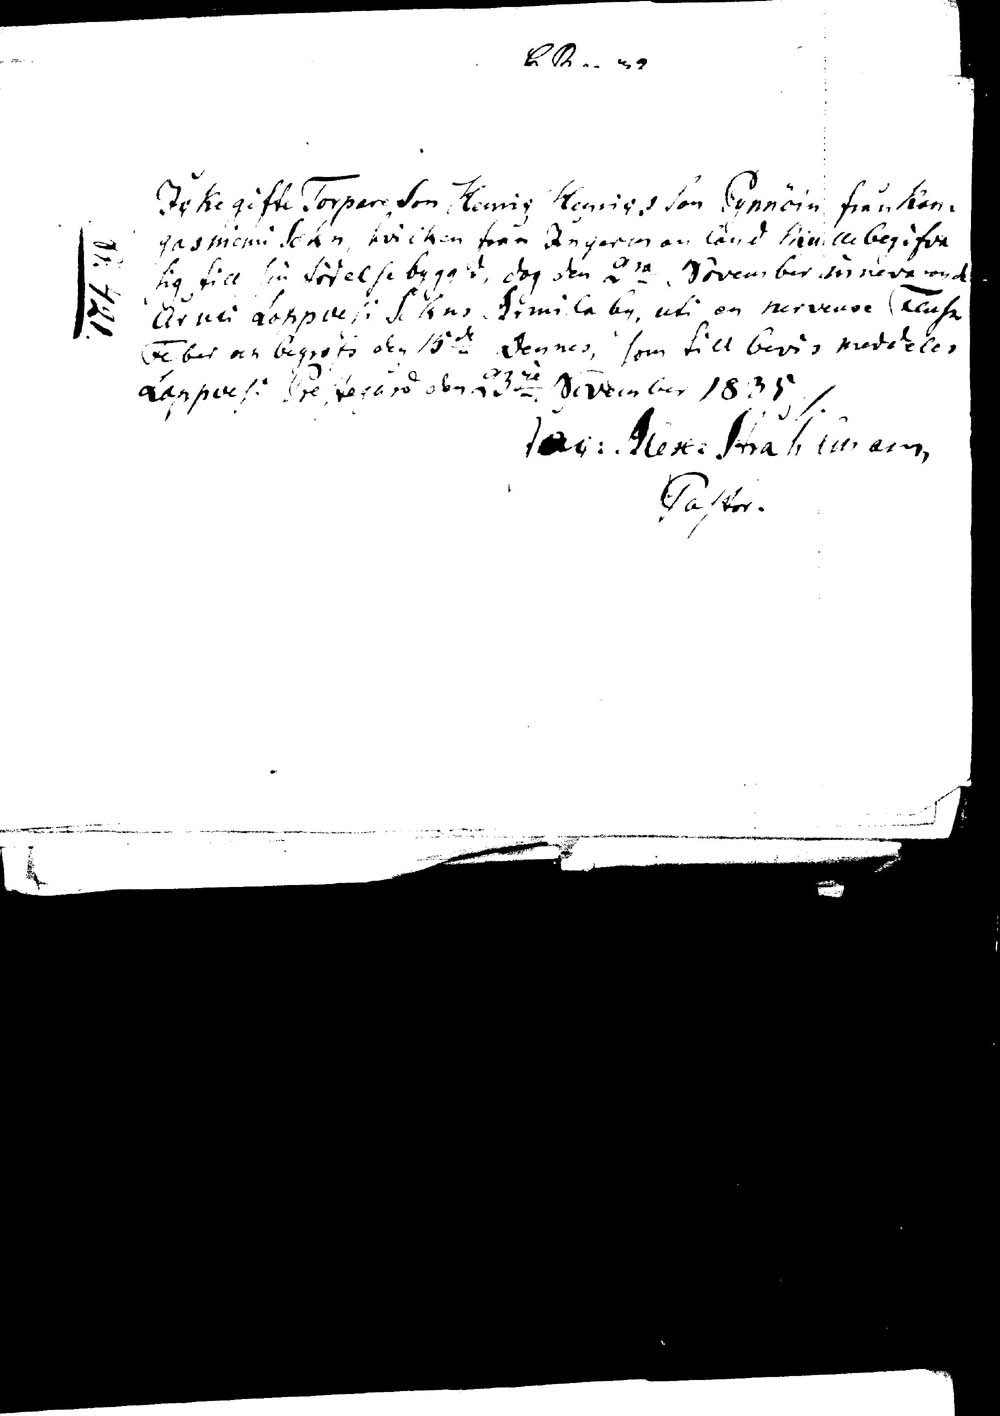 Icke gifte Torpare Son Henric Henrics Son Pynnöin från Kan-
gasniemi Sokn, hvilken från Ingermanland skulle begifva
sig till sin födelse bygg'd, dog den 2dra November innevarande
År uti Lappvesi Sokns Armila by, uti en nerveuse Fluss
Feber och begrofs den 15de Dennes, som till bevis meddeles
Lappvesi Prestegård den 23die November 1835
Jac: Alex: Strahlmann,
Pastor.